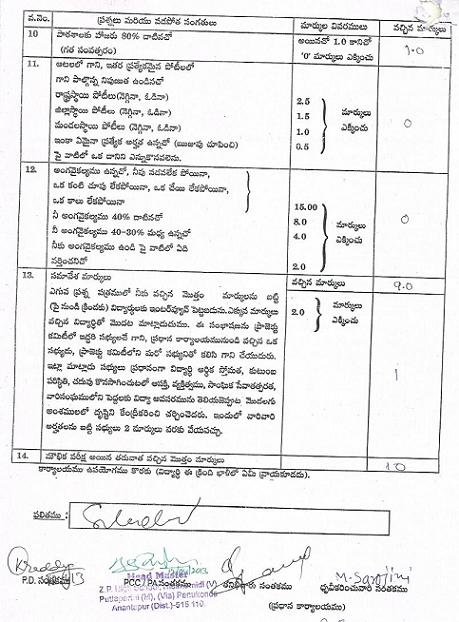 వ.నెం. ప్రశ్నలు మరియు వడపోత సంగతులు మార్కుల వివరములు వచ్చిన మార్కులు
10 పాఠశాలకు హాజరు 80% దాటినచో అయినచో 1.0 కానిచో 1.0
(గత సంవత్సరం) '0' మార్కులు ఎక్కించు
11. ఆటలలో గాని, ఇతర ప్రత్యేకమైన పోటీలలో
గాని పాల్గొన్న నిపుణుత ఉండినచో
రాష్ట్రస్థాయి పోటీలు(నెగ్గినా, ఓడినా) 2.5
జిల్లాస్థాయి పోటీలు (నెగ్గినా, ఓడినా) 1.5 మార్కులు 0
మండలస్థాయి పోటీలు (నెగ్గినా, ఓడినా) 1.0 ఎక్కించు
ఇంకా ఏమైనా ప్రత్యేక అర్హత ఉన్నచో (ఋజువు చూపించి) 0.5
పై వాటిలో ఒక దానిని ఎన్నుకొనవలెను.
12. అంగవైకల్యము ఉన్నచో, నీవు నడవలేక పోయినా,
ఒక కంటి చూపు లేకపోయినా, ఒక చేయి లేకపోయినా,
ఒక కాలు లేకపోయినా 15.00
నీ అంగవైకల్యము 40% దాటినచో 8.0 మార్కులు 0
నీ అంగవైకల్యము 40-30% మధ్య ఉన్నచో 4.0 ఎక్కించు
నీకు అంగవైకల్యము ఉండి పై వాటిలో ఏది
వర్తించనిచో 2.0
13. సమావేశ మార్కులు వచ్చిన మార్కులు 9.0
ఎగువ ప్రశ్న పత్రములో నీకు వచ్చిన మొత్తం మార్కులను బట్టి 2.0 మార్కులు
(పై నుండి క్రిందకు) విద్యార్థులకు ఇంటర్వ్యూవ్ పెట్టబడును.ఎక్కువ మార్కులు ఎక్కించు
వచ్చిన విద్యార్థితో మొదట మాట్లాడుదుము. ఈ సంభాషణను ప్రాజెక్టు
కమిటీలో ఇద్దరి సభ్యులచే గాని, ప్రధాన కార్యాలయమునుండి వచ్చిన ఒక
సభ్యుడు, ప్రాజెక్టు కమిటీలోని మరో సభ్యునితో కలిసి గాని చేయుదురు.
ఇట్లా మాట్లాడు సభ్యులు ప్రధానంగా విద్యార్థి ఆర్థిక స్తోమత, కుటుంబ
పరిస్థితి, చదువు కొనసాగించుటలో ఆసక్తి, వ్యక్తిత్వము, సాంఘిక సేవాతత్వరత, 1
వారిసంఘములోని పెద్దలకు విద్యా అవసరమును తెలియజెప్పుట మొదలగు
అంశములలో దృష్టిని కేంద్రీకరించి చర్చించెదరు. ఇందులో వారివారి
అర్హతలను బట్టి సభ్యులు 2 మార్కులు వరకు వేయవచ్చు.
14. మౌఖిక పరీక్ష అయిన తరువాత వచ్చిన మొత్తం మార్కులు 10
కార్యాలయము ఉపయోగము కొరకు (విద్యార్థి ఈ క్రింది ఖాళీలో ఏమీ వ్రాయకూడదు).
ఫలితము : Selected
P.D. సంతకము PCC / PA సంతకము తనిఖీదారు సంతకము ధృవీకరించువారి సంతకము
M. Sarojini
(ప్రధాన కార్యాలయం)
Head Master
Puttaparthi (M), (Via) Penukonda
Anantapur (Dist.)-515 110.